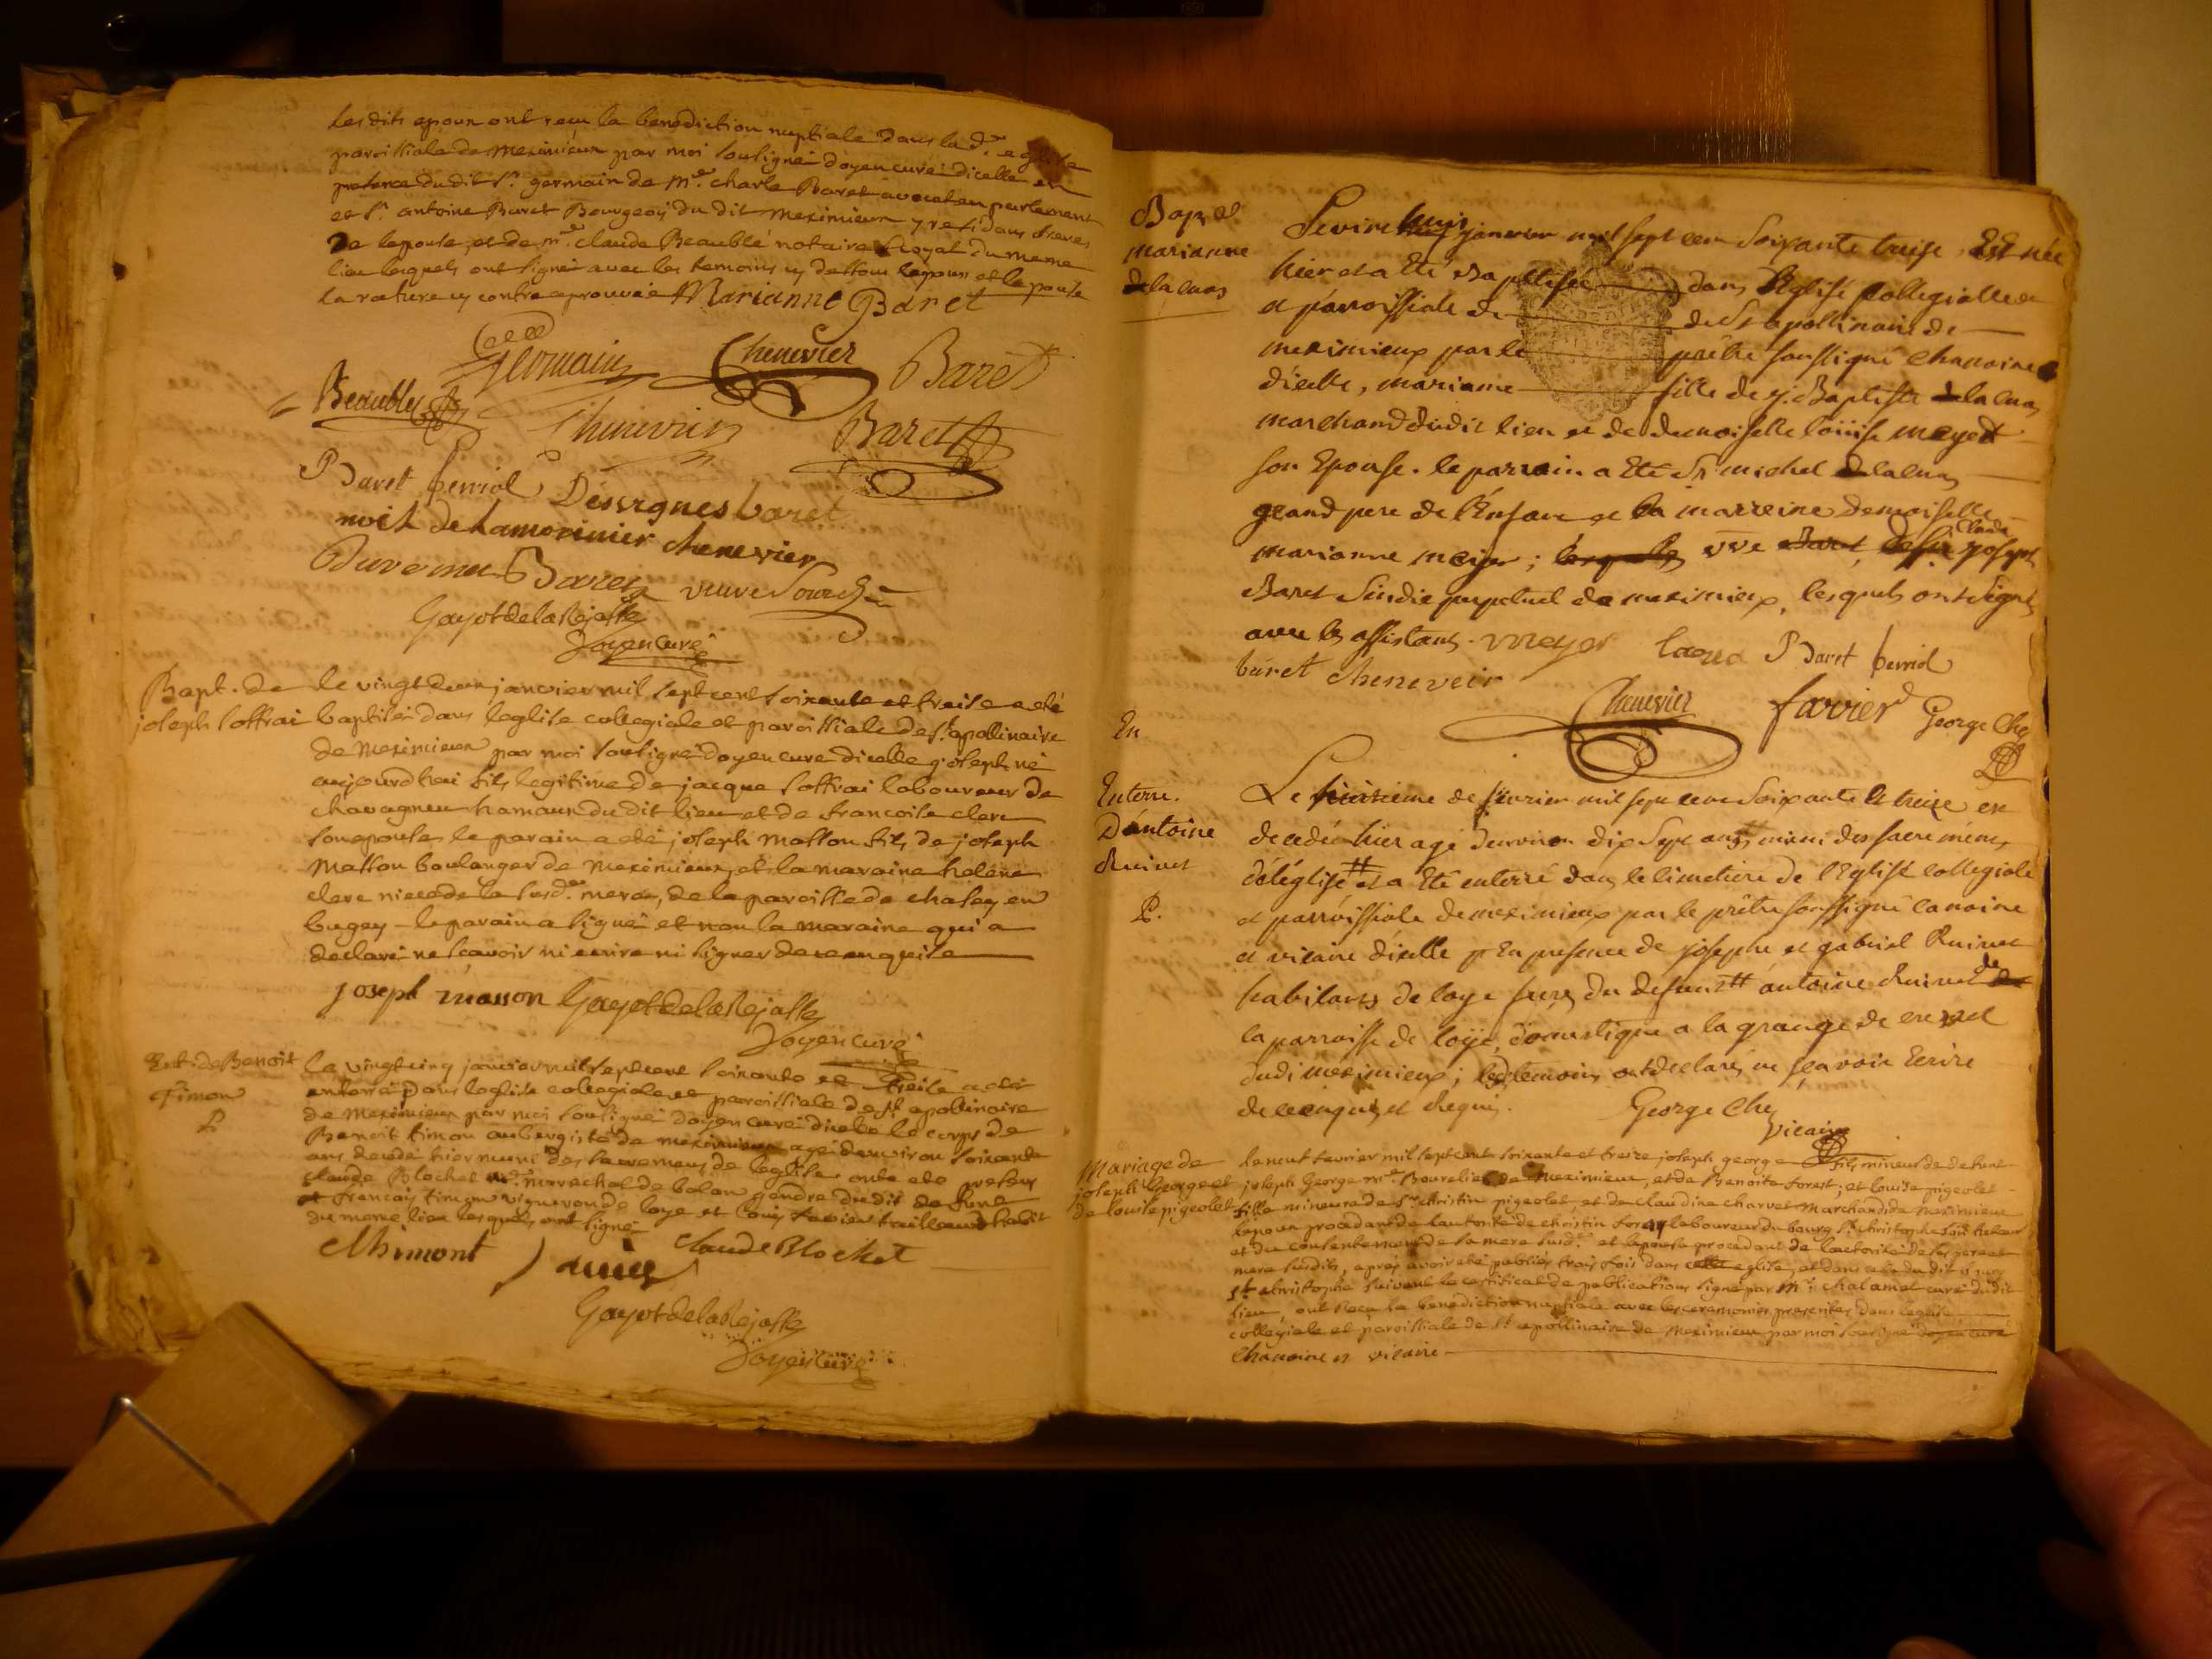 les dits epoux ont recu la benediction nuptiale dans la de eglise
paroissiale de meximieux par moi soussigné doyen curé dicelle en
presence du dit sr. germain de me. charle Baret avocat en parlement
et sr. antoine Baret Bourgeois du dit meximieux y residans freres
De lepouse, et de me. claude Beaublé notaire Royal du meme
lieu lesquels ont signé avec les temoins cy dessous lepoux et lepouse
la rature cy contre aprouvée Marianne Baret
Germain Chenevier Baret
Beaublez Chenevier Baret
P Baret perriol Desvignes baret
noit de Lamorinier chenevier
Duvernai Baret veuve
Gayot de la Rejasse
Doyen curé
Bapt. de
joseph soffrai
le vingt deux janvier mil sept cent soixante et treise a eté
baptisé dans leglise collegiale et paroissiale de st. apollinaire
de Meximieux par moi soussigné doyen curé dicelle joseph né
aujourdhui fils legitime de jacque soffrai laboureur de
chavagneux hamaux du dit lieu et de francoise clerc
son epouse, le parain a eté joseph Masson fils de joseph
Masson boulanger de Meximieux, et la maraine helene
clerc niece de la susd. mere, de la paroisse de chasey en
bugey – le parain a signé et non la maraine qui a
declaré ne scavoir ni ecrire ni signer de ce enquise
joseph masson Gayot de la Rejasse
Doyen curé
Ent. de Benoit
Timon
P.
le vingt cinq janvier mil sept cent soixante et treise a eté
enterré dans leglise collegiale et paroissiale de st apollinaire
de Meximieux par moi soussigné doyen curé dicelle le corps de
Benoit timon aubergiste de meximieux agé denviron soixante
ans decedé hier muni des sacremens de leglise, ont eté presens
claude Blochet me. marechal de balan gendre du dit defunt
et francois timon vigneron de loye et louis favier tailleur dhabit
du meme lieu lesquels ont signé
claude Blochet
Gayot de la Rejasse
Doyen curé
Bapt.
marianne
delacuas
Le vint huit janvier mil sept cen soixante treise, Est née
hier et a Eté Baptisée dans l'Eglise collegialle
et parroissiale de de St apollinaire de
meximieux par le prêtre soussigné chanoine
d'icelle, marianne fille de j. Baptiste
marchand dudit lieu et de demoiselle louise meyer
son Epouse. le parrain a Eté Sr michel
grand pere de l'Enfant et la marreine demoiselle
marianne meyer; vve claude joseph
Baret Sindic perpetuel de meximieux, lesquels ont signé
avec les assistans. meyer P Baret perriol
baret chenevier
Chenevier favier George Che
En
Enterre.
D'antoine
Ruinet
P.
Le de fevrier mil sept cent soixante et treize est
decedé hier agé denviron dix sept ans muni des sacremens
de l'église et a Eté enterré dans le cimetiere de l'Eglise collegiale
et parroissiale de meximieux par le prêtre soussigné canoine
et vicaire d'icelle En presence de josephe et gabriel Ruinet
habitans de loye freres du defunt antoine Ruinet de
la parroisse de loÿe, domestique a la grange de
dudi meximieux; lesd temoins ont declarés ne sçavoir Ecrire
de ce enquis et Requis. George Che
vicaire
Mariage de
joseph George et
de louise pigeolet
Le neuf fevrier mil sept cent soixante et treize joseph george fils mineur de defunt
joseph George me Bourelier de meximieux, et de Benoite forest; et louise pigeolet
fille mineure de sr christin pigeolet, et de claudine charvet marchand de Meximieux
lepoux procedant de lautorité de christin forest laboureur du bourg st. christophe son tuteur
et du consentement de sa mere susd. et lepouse procedant de lautorité de ses pere et
mere susdits, après avoir eté publiés trois fois dans cette eglise, et dans celle du dit bourg
st christophe suivant le certificat de publications signé par Mr chalamel curé dudit
lieu, ont Recu la benediction nuptiale avec les ceremonies presentes dans leglise
collegiale et paroissiale de st. apollinaire de Meximieux par moi soussigné doyen curé
chanoine et vicaire